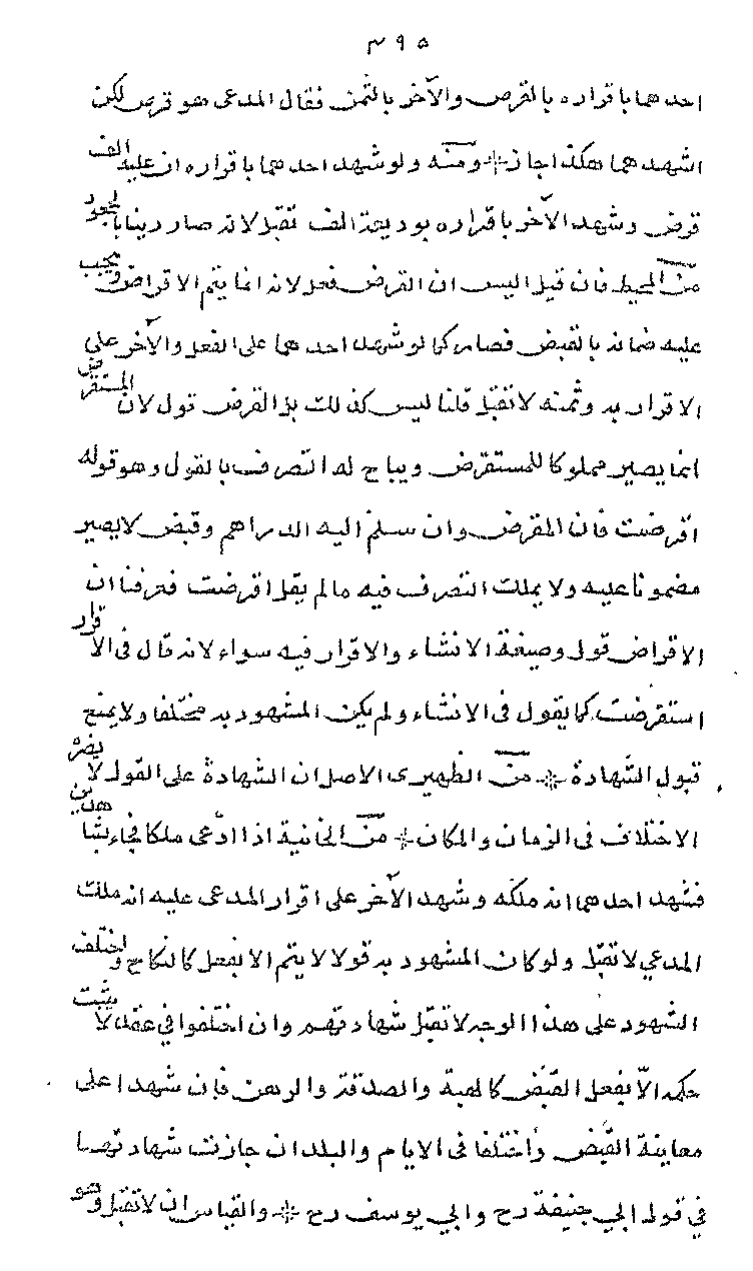 ٣٩٥
احدهما باقراره بالقرض والآخر بالثمن فقال المدعى هو قرض لكن
اشهدهما هكذا جاز * ومنه ولو شهد احدهما باقراره ان عليه الف
قرض وشهد الآخر باقراره بوديعة الف تقبل لانه صار دينا بالجحود
من المحيط فان قيل اليس ان القرض فعل لانه انما يتم الاقراض ويجب
عليه ضمانه بالقبض فصار كما لو شهد احدهما على الفعل والآخر على
الاقرار به وثمنه لا تقبل قلنا ليس كذلك بل القرض قول لان المستقرض
انما يصير مملوكا للمستقرض ويباح له التصرف بالقول وهو قوله
اقرضت فان المقرض وان سلم اليه الدراهم وقبض لا يصير
مضمونا عليه ولا يملك التصرف فيه ما لم يقل اقرضت فعرفنا ان
الاقراض قول وصيغة الانشاء والاقرار فيه سواء لانه قال فى الاقرار
استقرضت كما يقول فى الانشاء ولم يكن المشهود به مختلفا ولا يمنع
قبول الشهادة * من الظهيرى الاصل ان الشهادة على القول لا يضره
الاختلاف فى الزمان والمكان * من الخانية اذا ادّعى ملكا فجاء بشاهدين
فشهد احدهما انه ملكه وشهد الآخر على اقرار المدعى عليه انه ملك
المدعي لا تقبل ولو كان المشهود به قولا لا يتم الا بفعل كالنكاح واختلف
الشهود على هذا الوجه لا تقبل شهادتهم وان اختلفوا في عقد لا يثبت
حكمه الّا بفعل القبض كالهبة والصدقة والرهن فان شهدا على
معاينة القبض واختلفا فى الايام والبلدان جازت شهادتهما
في قول ابي حنيفة رح وابي يوسف رح * والقياس ان لا تقبل وهو